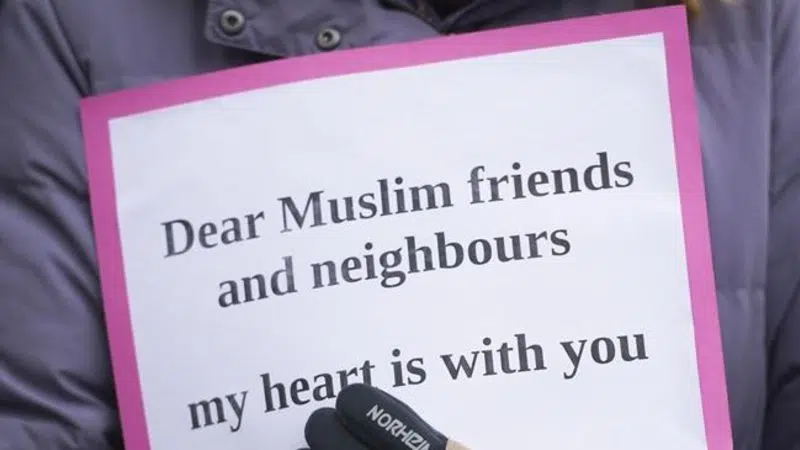 Dear Muslim friends
and neighbours
my heart is with you